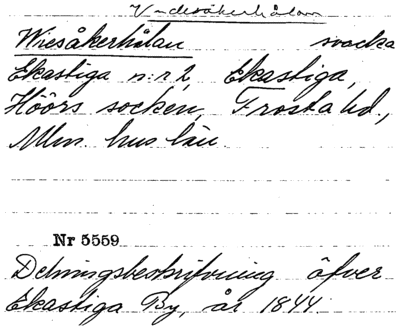 V-desåkerhålan
Wiesåkerhålan svacka
Ekastiga n:r 2, Ekastiga,
Höörs socken, Frosta hd.,
Mlm. hus län.
Nr 5559
Delningsbeskrifvning öfver
Ekastiga By, år 1844.